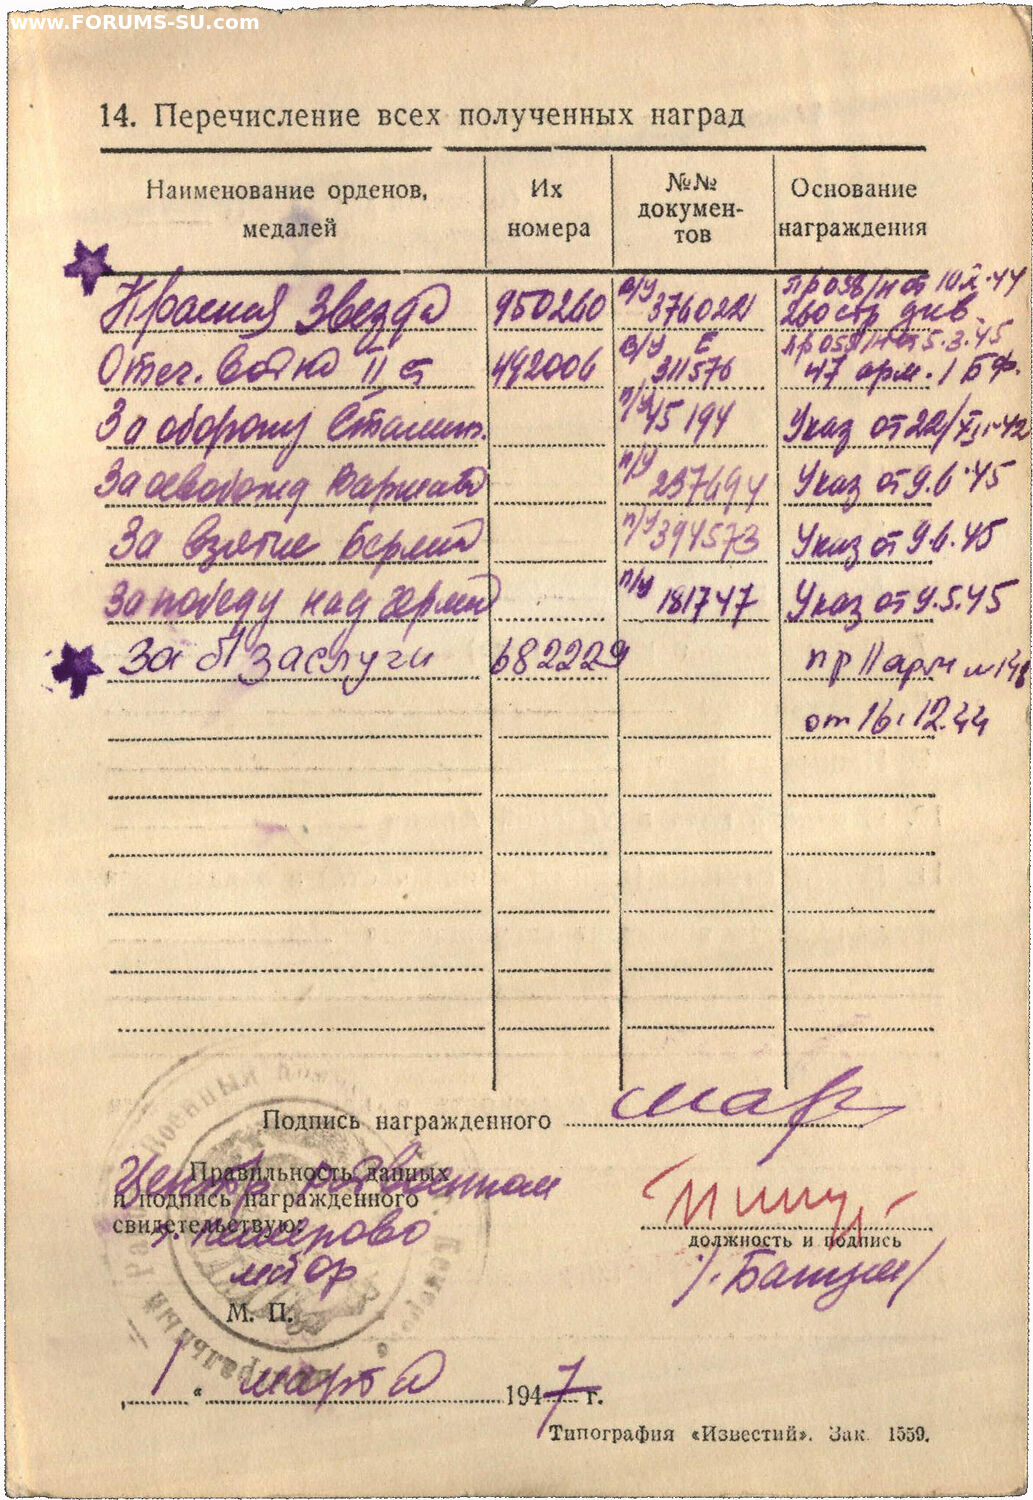 www.FORUMS-SU.com
14. Перечисление всех полученных наград
Наименование орденов, медалей
Их номера
№№ докумен- тов
Основание награждения
Красная Звезда 950260 в/у 376022 пр 058/н от 10.X.44
260 стр див.
Отеч. Война II ст 492006 в/у Е 311576 пр 058/н от 5.3.45
47 арм. 1 БФ.
За оборону Сталин. п/у 45194 Указ от 22/XII-42
За освобожд Варшавы п/у 237694 Указ от 9.6.45
За взятие Берлина п/у 394573 Указ от 9.6.45
За победу над Герман п/у 181747 Указ от 9.5.45
За б/заслуги 682229 пр 11 арм №148
от 16.12.44
Подпись награжденного
Правильность данных
и подпись награжденного
свидетельствую:
Центр. райвоенком
г. Кемерово
майор
должность и подпись
М. П.
1 " марта 1947 г.
Типография «Известий». Зак. 1559.